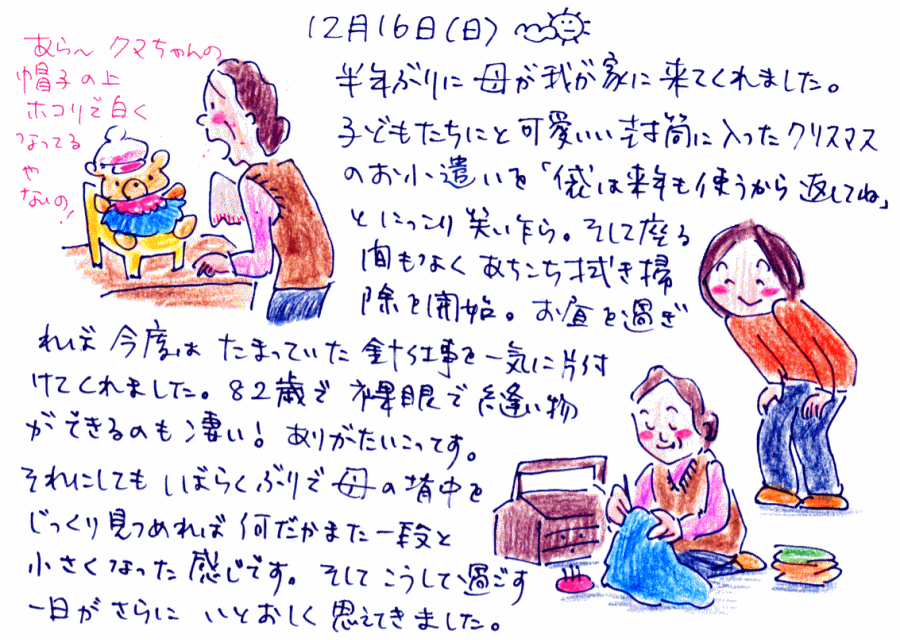 12月16日(日)
あら〜 クマちゃんの
帽子の上
ホコリで白く
なってる
や
ないの!
半年ぶりに 母が我が家に 来てくれました。
子どもたちにと 可愛いい封筒に入ったクリスマス
のお小遣いを「袋は来年も使うから 返してね」
とにっこり 笑い乍ら。そして座る
間もなく あちこち拭き掃
除を開始。お昼を過ぎ
れば 今度は たまっていた 針仕事を一気に片付
けてくれました。82歳で 裸眼で縫い物
ができるのも凄い! ありがたいこってす。
それにしても しばらくぶりで 母の背中を
じっくり見つめれば 何だかまた一段と
小さくなった感じです。そしてこうして過ごす
一日がさらに いとおしく 思えてきました。